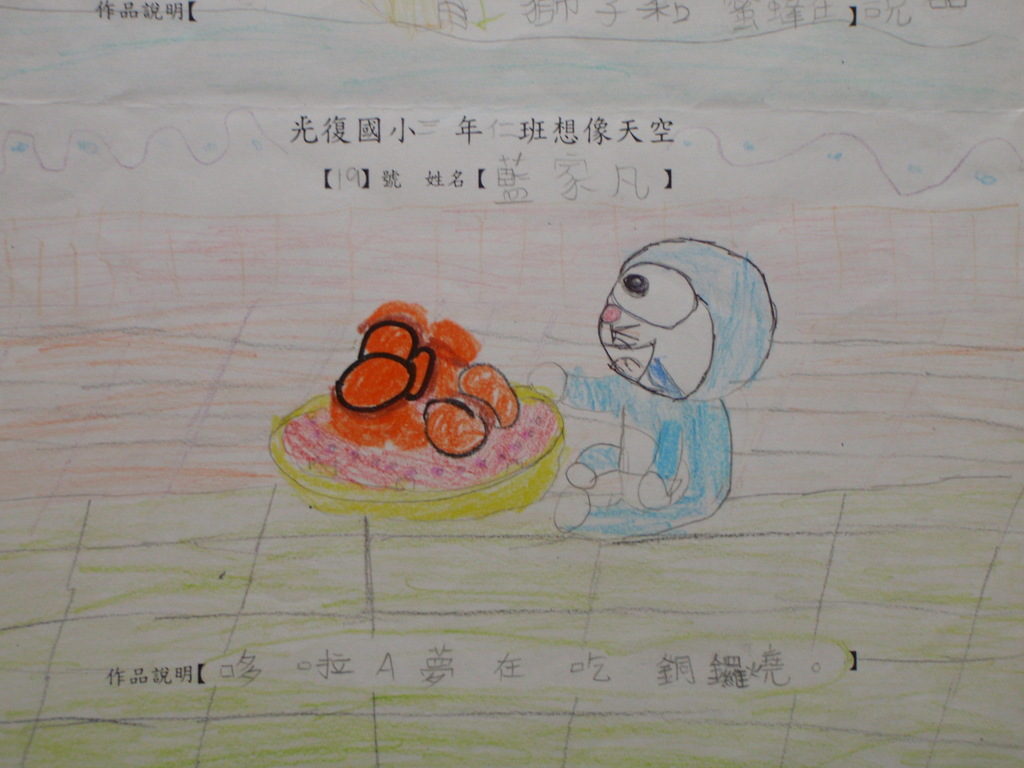 作品說明【 用 獅子和 蜜蜂在】說
光復國小三年仁班想像天空
【19】號 姓名【藍家凡】
作品說明【哆啦A夢在吃銅鑼燒。】